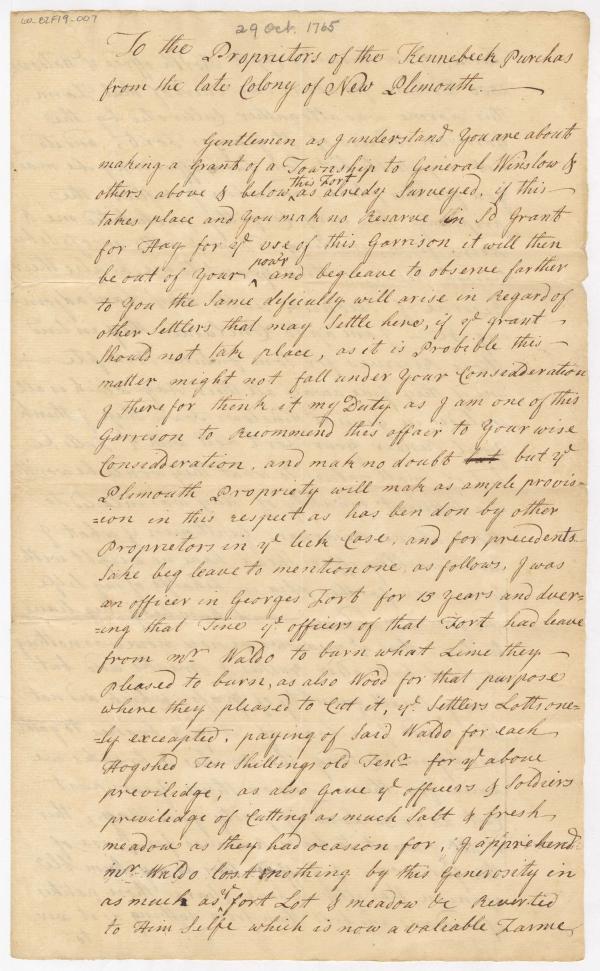 LO_E2F19_007
29 Oct. 1765
To the Proprietors of the Kennebeck Purchas
from the late Colony of New Plimouth.
Gentlemen as I understand You are about
making a Grant of a Township to General Winslow &
others above & below ^ this Fort as alredy Surveyed, if this
takes place and You mak no Resarve in Sd Grant
for Hay for ye use of this Garrison it will then
be out of Your ^ powr and beg leave to observe farther
to You the Same defeculty will arise in Regard of
other Settlers that may Settle here, if ye grant
Should not tak place, as it is Probible this
matter might not fall under Your Considderation
I therefor think it my Duty as I am one of this
Garrison to Recommend this affair to Your wise
Considderation, and mak no doubt but ye
Plimouth Propriety will mak as ample provis-
=ion in this respect as has ben don by other
Proprietors in ye lick Case, and for precedents
Sake beg leave to mention one as follows, I was
an officer in Georges Fort for 15 Years and duer=
=ing that Time ye officers of that Fort had leave
from mr Waldo to burn what Lime they
pleased to burn, as also Wood for that purpose
where they pleased to Cut it, ye Settlers Lotts one=
=ly excepted, paying of Said Waldo for each
Hogshed Ten Shillings old Tenr for ye above
previlidge, as also Gave ye officers & Soldiers
previlidge of Cutting as much Salt & fresh
meadow as they had ocasion for, I apprihend
mr Waldo lost nothing by this Generosity in
as much as ^ ye fort Lot & meadow &c Reverted
to Him Selfe which is now a valiable Farme